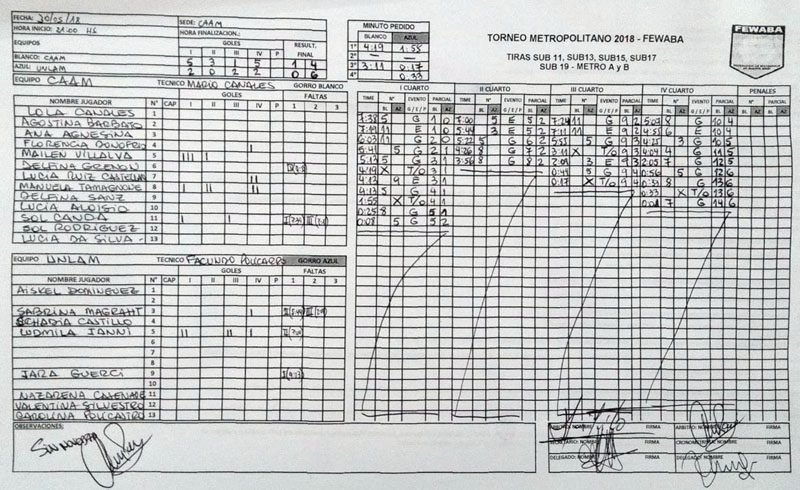 FECHA: 30/05/18
HORA INICIO: 21:00 HS
SEDE: CAAM
HORA FINALIZACION:
EQUIPOS GOLES RESULT. FINAL
I II III IV P
BLANCO: CAAM 5 3 1 5 14
AZUL: UNLAM 2 0 2 2 06
MINUTO PEDIDO
BLANCO AZUL
1° 4:19 1:55
2° —
3° 3:11 0:17
4° 0:33
TORNEO METROPOLITANO 2018 - FEWABA
TIRAS SUB 11, SUB13, SUB15, SUB17
SUB 19 - METRO A y B
FEWABA
EQUIPO CAAM TECNICO MARIO CANALES GORRO BLANCO
NOMBRE JUGADOR N° CAP GOLES FALTAS
I II III IV P 1 2 3
LOLA CANALES 1
AGOSTINA BARBATO 2
ANA AGNESINA 3
FLORENCIA DONOFRIO 4
MAILEN VILLALVA 5
DELFINA GRENON 6
LUCIA RUIZ CASTELLA 7
MANUELA TAMAGNONE 8
DELFINA SANZ 9
LUCIA ALOISIO 10
SOL CANDA 11
SOL RODRIGUEZ 12
LUCIA DA SILVA 13
EQUIPO UNLAM TECNICO FACUNDO POLICARPO GORRO AZUL
NOMBRE JUGADOR N° CAP GOLES FALTAS
I II III IV P 1 2 3
AISKEL DOMINGUEZ 1
2
SABRINA MAGRAHT 3
CHADIA CASTILLO 4
LUDMILA IANNI 5
6
7
8
JARA GUERCI 9
10
NAZARENA 11
VALENTINA SILVESTRO 12
CAROLINA POLICASTRO 13
I CUARTO II CUARTO III CUARTO IV CUARTO PENALES
TIME N° EVENTO PARCIAL TIME N° EVENTO PARCIAL TIME N° EVENTO PARCIAL TIME N° EVENTO PARCIAL N° PARCIAL
BL AZ G / E / P BL AZ BL AZ G / E / P BL AZ BL AZ G / E / P BL AZ BL AZ G / E / P BL AZ BL AZ BL AZ
7:38 5 G 1 0 7:00 5 E 5 2 7:24 11 G 9 2 5:03 8 G 10 4
7:19 11 E 1 0 5:44 3 E 5 2 7:11 11 E 9 2 4:55 6 E 10 4
6:03 11 G 2 0 5:22 5 G 6 2 5:55 5 G 9 3 4:25 3 G 10 5
5:41 5 G 2 1 4:26 8 G 7 2 3:11 X T/O 9 3 4:04 4 G 11 5
5:13 5 G 3 1 3:56 8 G 8 2 2:09 3 E 9 3 2:05 7 G 12 5
4:19 X T/O 3 1 0:49 5 G 9 4 0:56 5 G 12 6
4:13 9 E 3 1 0:17 X T/O 9 4 0:39 8 G 13 6
4:13 5 G 4 1 0:33 X T/O 13 6
1:55 X T/O 4 1 0:01 7 G 14 6
0:25 8 G 5 1
0:08 5 G 5 2
OBSERVACIONES:
SIN NOVEDAD
ARBITRO: NOMBRE FIRMA ARBITRO: NOMBRE FIRMA
SECRETARIO: NOMBRE FIRMA CRONOMETRISTA: NOMBRE FIRMA
DELEGADO: NOMBRE FIRMA DELEGADO: NOMBRE FIRMA